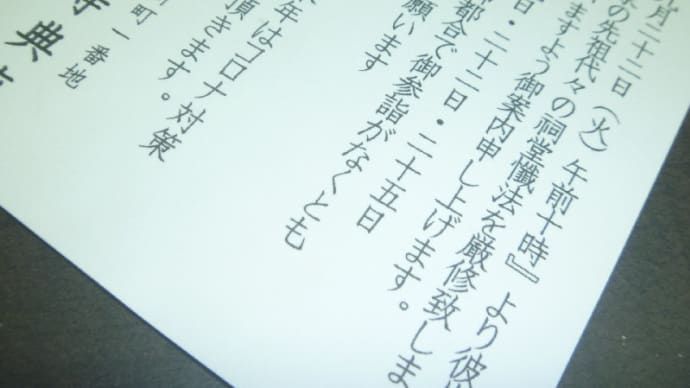 月二十二日(火)午前十時』より彼
の先祖代々の祠堂懺法を厳修致しま
ますよう御案内申し上げます。
日・二十二日・二十五日
都合で御参詣がなくとも
願います
年はコロナ対策
頂きます。
町一番地
寺典